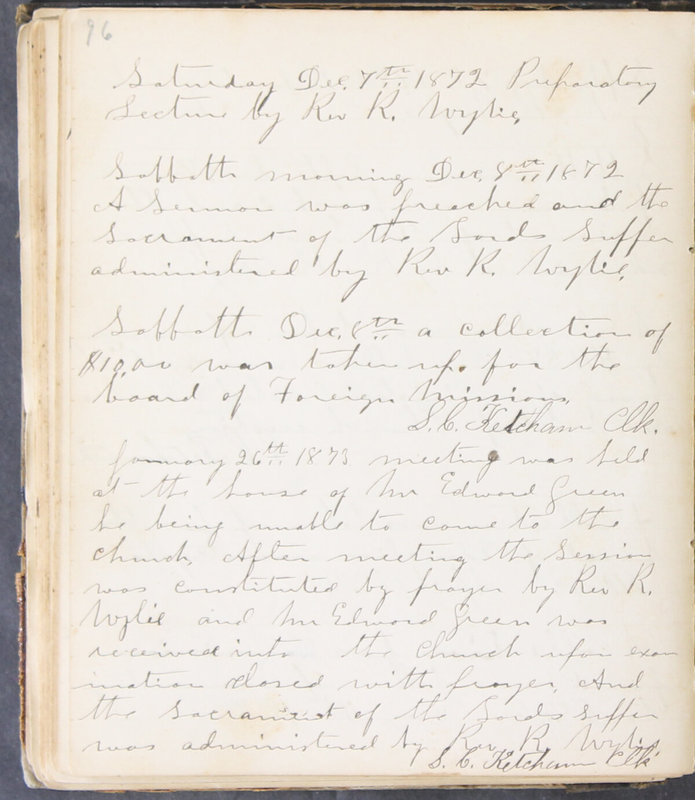 96
Saturday Dec. 7th 1872 Preparatory
Lecture by Rev R. Wylie.
Sabbath morning Dec. 8th 1872
A Sermon was preached and the
Sacrament of the Lords Supper
administered by Rev R. Wylie.
Sabbath Dec. 8th a collection of
$10.00 was taken up for the
board of Foreign Missions.
S. C. Ketcham Clk.
January 26th 1873 meeting was held
at the house of Mr Edward Green
he being unable to come to the
church. After meeting the Session
was constituted by prayer by Rev R.
Wylie and Mr Edward Green was
received into the Church upon exam
ination closed with prayer. And
the Sacrament of the Lords Supper
was administered by Rev R. Wylie.
S. C. Ketcham Clk